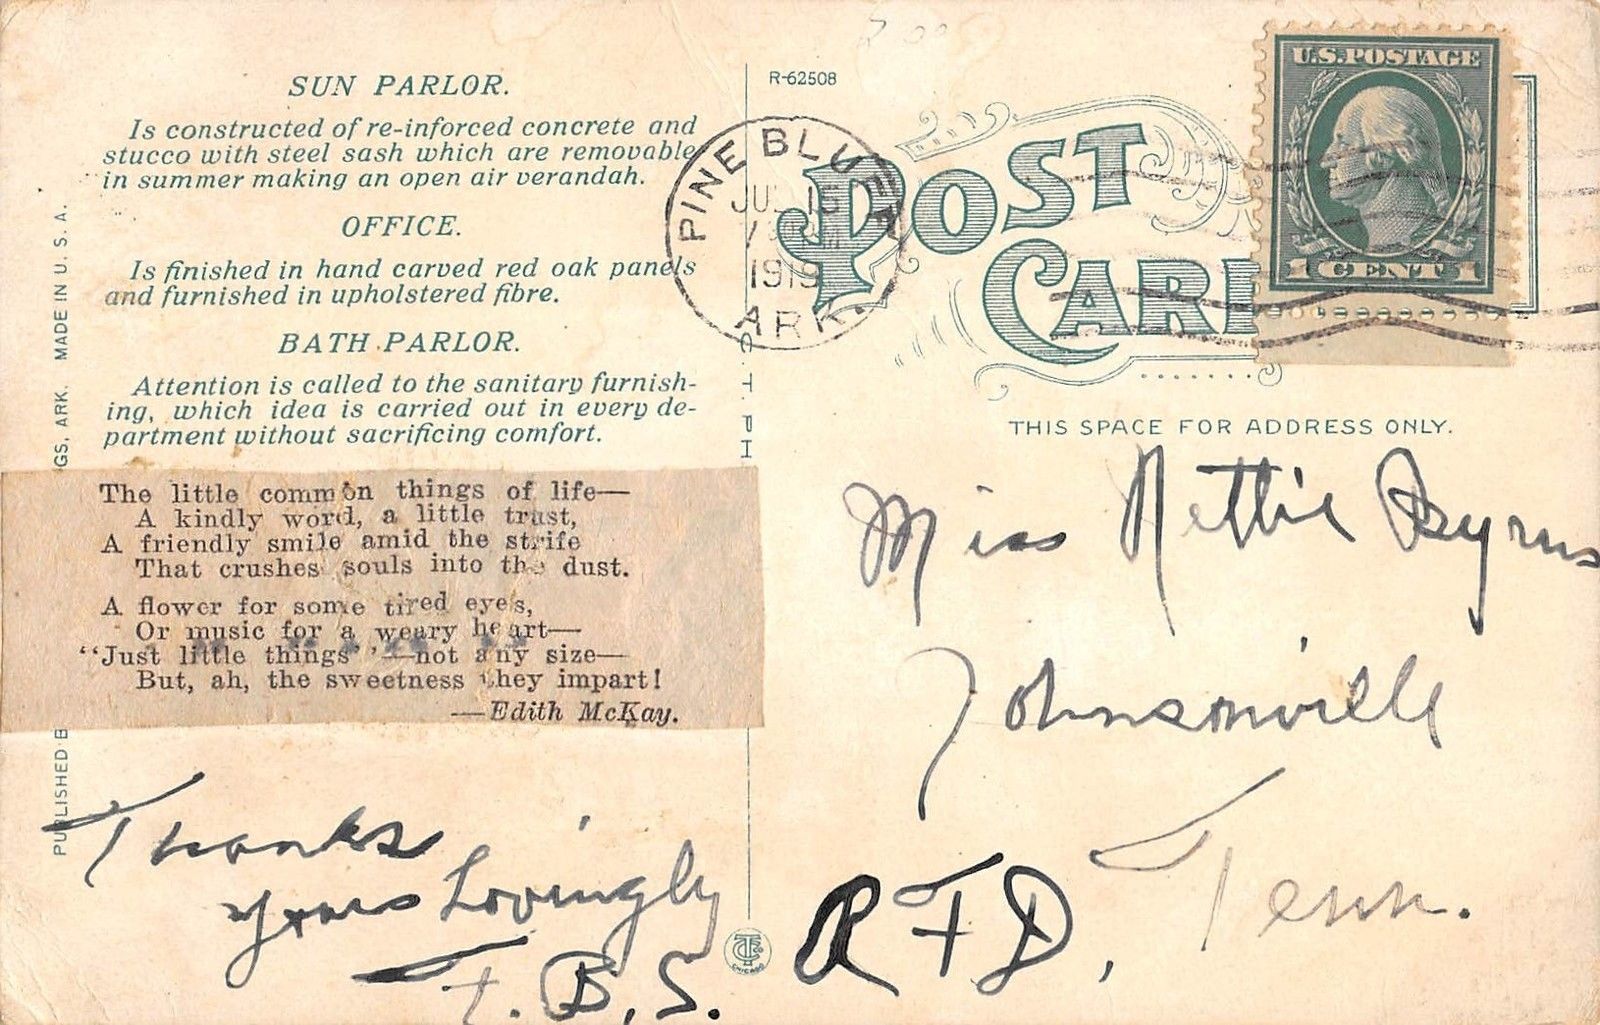 SUN PARLOR.
Is constructed of re-inforced concrete and
stucco with steel sash which are removable
in summer making an open air verandah.
OFFICE.
Is finished in hand carved red oak panels
and furnished in upholstered fibre.
BATH PARLOR.
Attention is called to the sanitary furnish-
ing, which idea is carried out in every de-
partment without sacrificing comfort.
The little common things of life—
A kindly word, a little trust,
A friendly smile amid the strife
That crushes souls into the dust.
A flower for some tired eyes,
Or music for a weary heart—
"Just little things"—not any size—
But, ah, the sweetness they impart!
—Edith McKay.
Thanks
yours Lovingly
F.B.S.
PUBLISHED B
GS, ARK. MADE IN U. S. A.
R-62508
PINE BLUFF
JUL 15
1919
ARK.
POST
CARD
U.S. POSTAGE
1 CENT 1
C. T. PH
THIS SPACE FOR ADDRESS ONLY.
Miss Nettie Byrns
Johnsonville
Tenn.
RFD,
CHICAGO